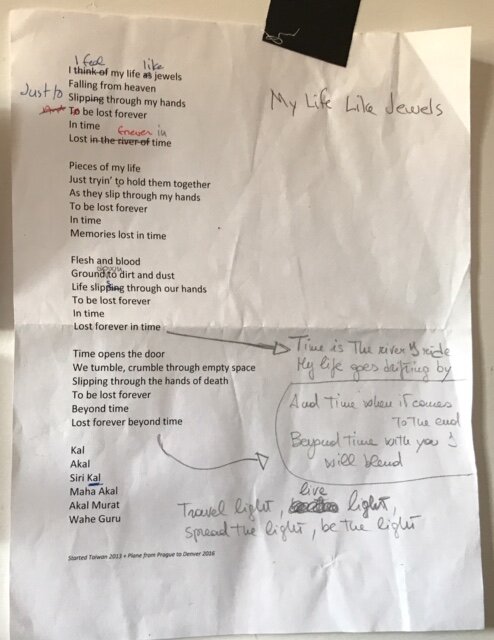 My Life Like Jewels
I feel like
I think of my life as jewels
Falling from heaven
Just to
Slipping through my hands
To be lost forever
In time
forever in
Lost in the river of time
Pieces of my life
Just tryin' to hold them together
As they slip through my hands
To be lost forever
In time
Memories lost in time
Flesh and blood
down
Ground to dirt and dust
Life slipping through our hands
To be lost forever
In time
Lost forever in time
Time is the river I ride
My life goes drifting by
Time opens the door
We tumble, crumble through empty space
Slipping through the hands of death
To be lost forever
Beyond time
Lost forever beyond time
And time when it comes
To the end
Beyond time with you I
will blend
Kal
Akal
Siri Kal
Maha Akal
Akal Murat
Wahe Guru
live
Travel light, light,
spread the light, be the light
Started Taiwan 2013 + Plane from Prague to Denver 2016